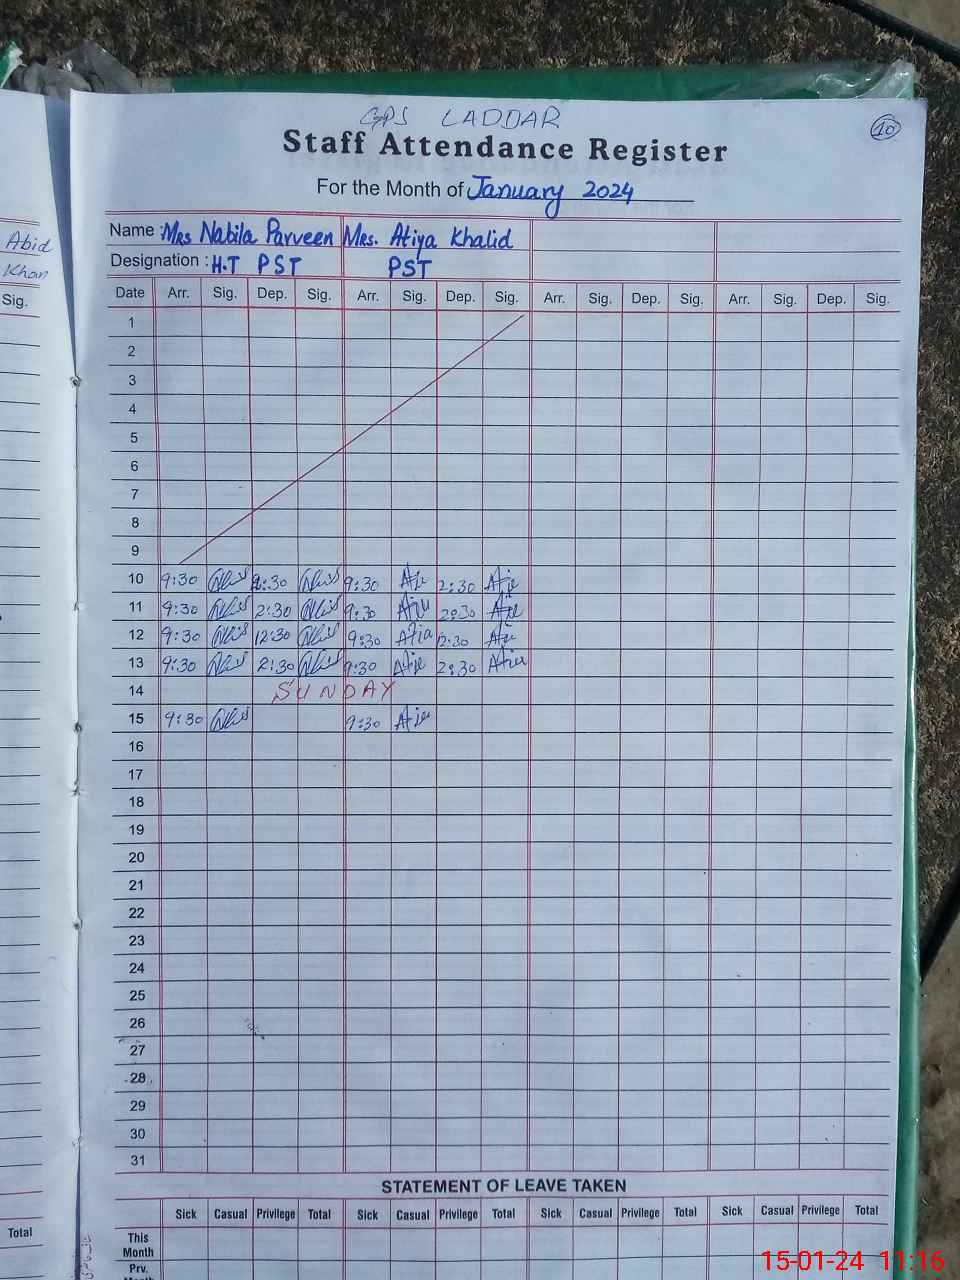 GPS LADDAR
10
Staff Attendance Register
For the Month of January 2024
Abid
Khan
Sig.
Name : Mrs Nabila Parveen Mrs. Atiya Khalid
Designation : H.T PST PST
Date Arr. Sig. Dep. Sig. Arr. Sig. Dep. Sig. Arr. Sig. Dep. Sig. Arr. Sig. Dep. Sig.
1
2
3
4
5
6
7
8
9
10 9:30 2:30 9:30 2:30
11 9:30 2:30 9:30 2:30
12 9:30 12:30 9:30 12:30
13 9:30 2:30 9:30 2:30
14 SUNDAY
15 9:30 9:30
16
17
18
19
20
21
22
23
24
25
26
27
28
29
30
31
STATEMENT OF LEAVE TAKEN
Sick Casual Privilege Total Sick Casual Privilege Total Sick Casual Privilege Total Sick Casual Privilege Total
Total
This
Month
Prv.
Month
15-01-24 11:16